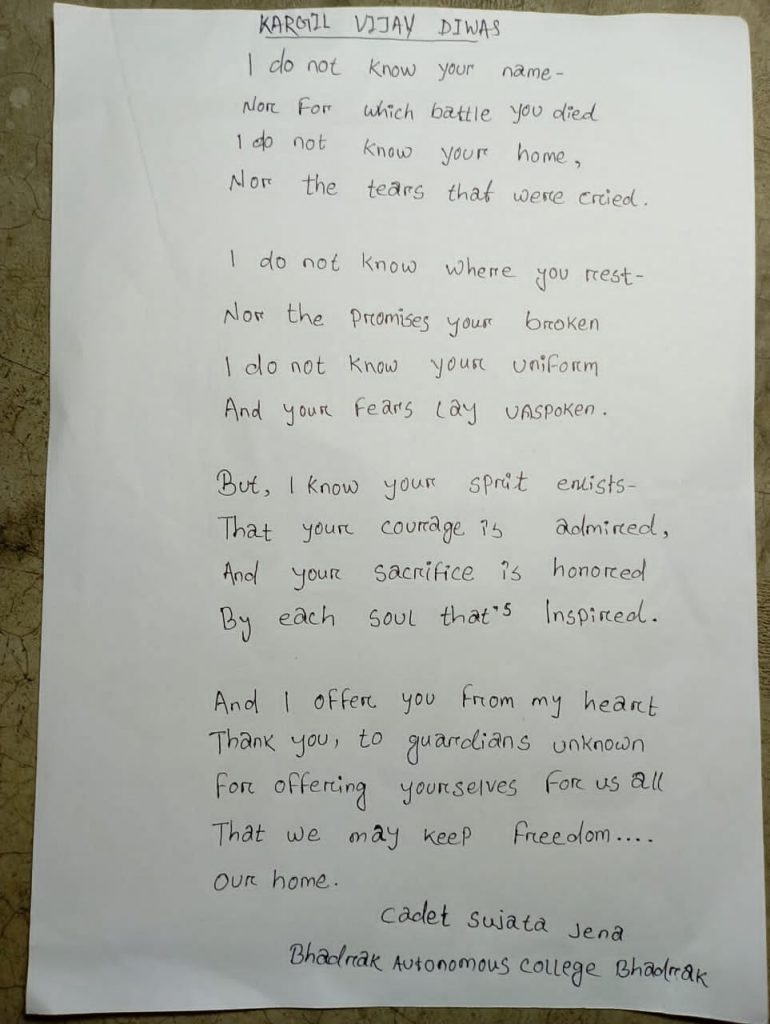 KARGIL VIJAY DIWAS
I do not know your name-
Nor For which battle you died
I do not know your home,
Nor the tears that were cried.
I do not know where you rest-
Nor the promises your broken
I do not know your uniform
And your Fears lay unspoken.
But, I know your sprit enlists-
That your courage is admired,
And your sacrifice is honored
By each soul that's Inspired.
And I offer you from my heart
Thank you, to guardians unknown
For offering yourselves for us all
That we may keep freedom....
Our home.
Cadet Sujata Jena
Bhadrak Autonomous College Bhadrak